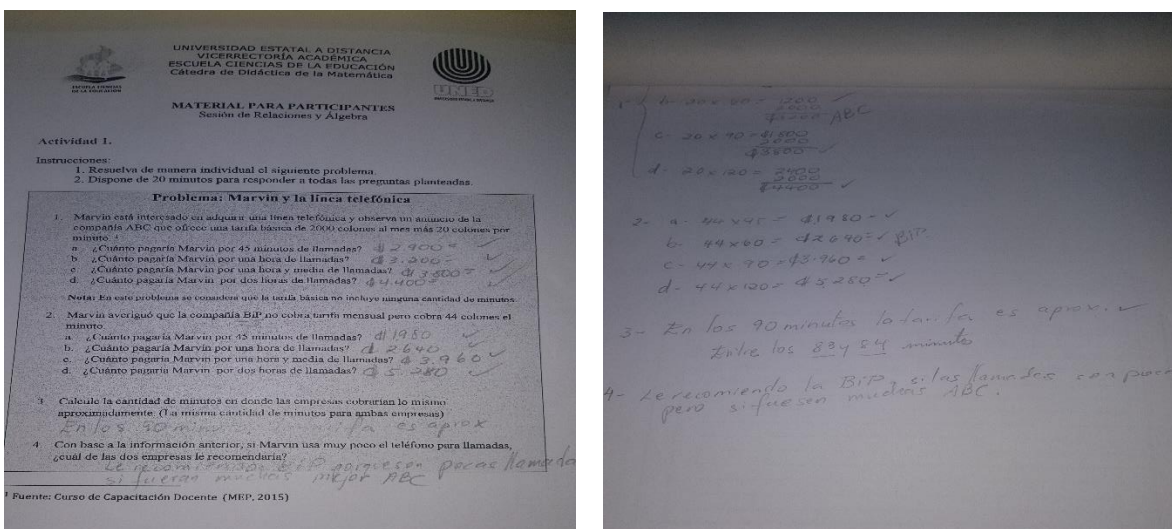 UNIVERSIDAD ESTATAL A DISTANCIA
VICERRECTORÍA ACADÉMICA
ESCUELA CIENCIAS DE LA EDUCACIÓN
Cátedra de Didáctica de la Matemática
ESCUELA CIENCIAS
DE LA EDUCACION
UNED
MATERIAL PARA PARTICIPANTES
Sesión de Relaciones y Álgebra
Actividad 1.
Instrucciones:
1. Resuelva de manera individual el siguiente problema.
2. Dispone de 20 minutos para responder a todas las preguntas planteadas.
Problema: Marvin y la línea telefónica
1. Marvin está interesado en adquirir una línea telefónica y observa un anuncio de la
compañía ABC que ofrece una tarifa básica de 2000 colones al mes más 20 colones por
minuto.
a. ¿Cuánto pagaría Marvin por 45 minutos de llamadas? ₡2.900=
b. ¿Cuánto pagaría Marvin por una hora de llamadas? ₡3.200=
c. ¿Cuánto pagaría Marvin por una hora y media de llamadas? ₡3.800=
d. ¿Cuánto pagaría Marvin por dos horas de llamadas? ₡4.400=
Nota: En este problema se considera que la tarifa básica no incluye ninguna cantidad de minutos.
2. Marvin averiguó que la compañía BiP no cobra tarifa mensual pero cobra 44 colones el
minuto.
a. ¿Cuánto pagaría Marvin por 45 minutos de llamadas? ₡1980
b. ¿Cuánto pagaría Marvin por una hora de llamadas? ₡2.640
c. ¿Cuánto pagaría Marvin por una hora y media de llamadas? ₡3.960
d. ¿Cuánto pagaría Marvin por dos horas de llamadas? ₡5.280
3. Calcule la cantidad de minutos en donde las empresas cobrarían lo mismo
aproximadamente. (La misma cantidad de minutos para ambas empresas)
En los 90 minutos la tarifa es aprox
4. Con base a la información anterior, si Marvin usa muy poco el teléfono para llamadas,
¿cual de las dos empresas le recomendaría?
Le recomiendo BiP porque son pocas llamada
si fueran muchas mejor ABC
¹ Fuente: Curso de Capacitación Docente (MEP, 2015)
1- b- 20 x 60 = 1200
2000
₡3200 ABC
c- 20 x 90 = ₡1800
2000
₡3800
d- 20 x 120 = 2400
2000
₡4400
2- a- 44 x 45 = ₡1980=
b- 44 x 60 = ₡2640= BiP
c- 44 x 90 = ₡3.960=
d- 44 x 120 = ₡5.280=
3- En los 90 minutos la tarifa es aprox.
Entre los 83 y 84 minutos
4- Le recomiendo la BiP si las llamadas son pocas
pero si fuesen muchas ABC.